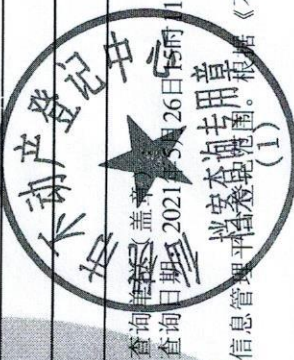 市不动产登记中心
档案查询专用章
(1)
查询单位(盖章)
查询日期:2021年 月26日 时
信息管理平台 范围。根据《